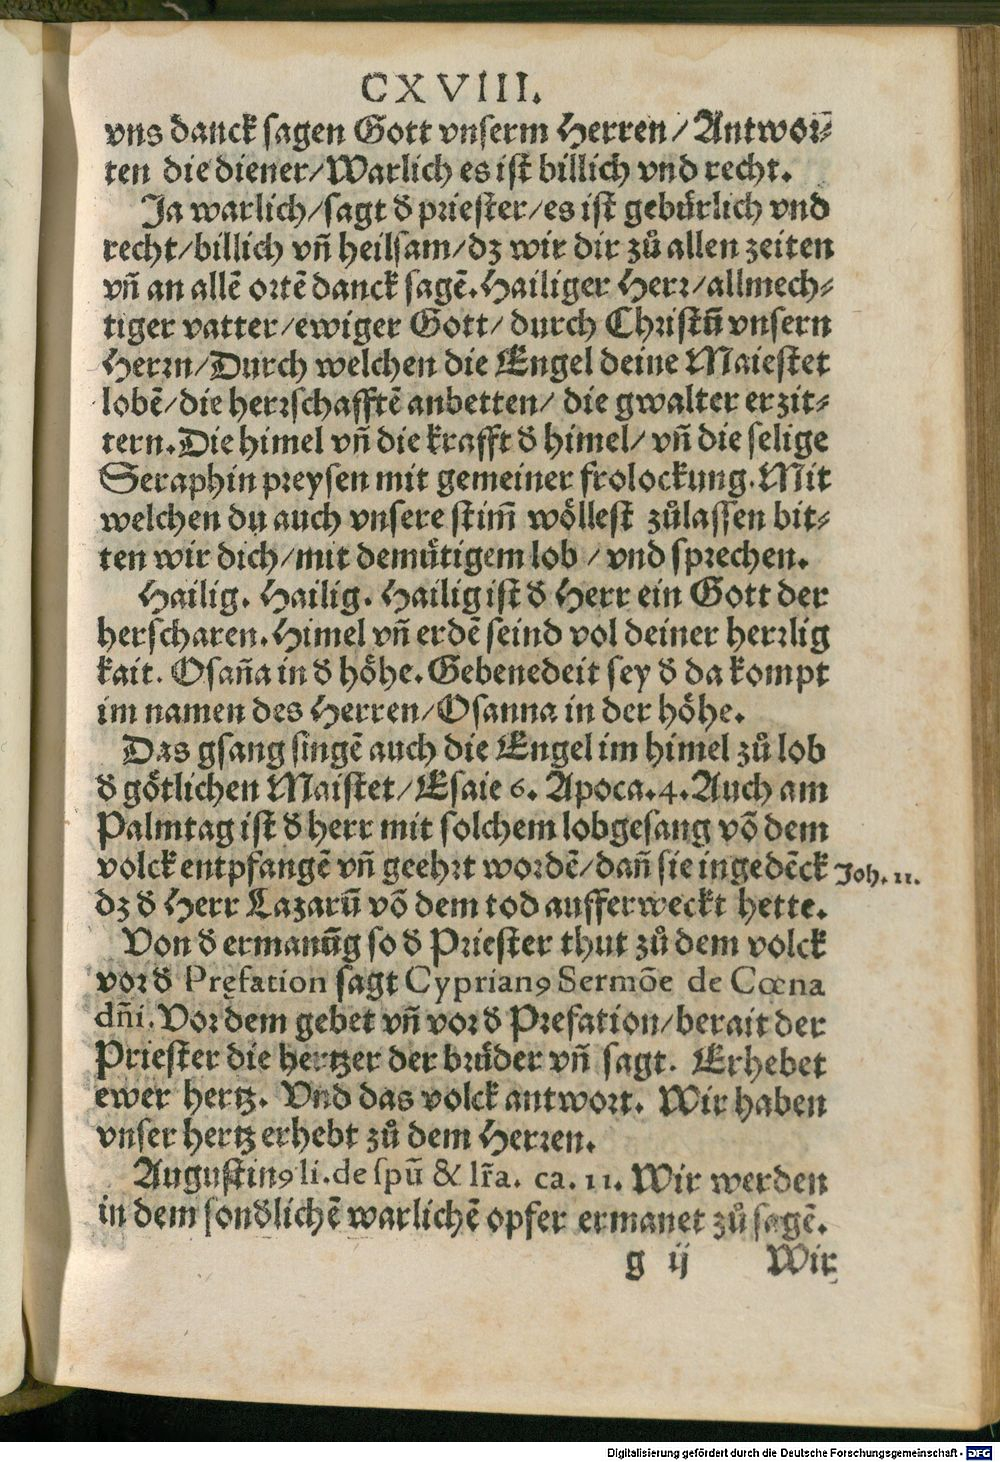 CXVIII.
vns danck sagen Gott vnserm Herren / Antwor⸗
ten die diener/Warlich es ist billich vnd recht.
Ja warlich/sagt đ priester/es ist gebürlich vnd
recht/billich vñ heilsam/dz wir dir zů allen zeiten
vñ an allē ortē danck sagē.Hailiger Herr/allmech⸗
tiger vatter/ewiger Gott/ durch Christū vnsern
Herrn/Durch welchen die Engel deine Maiestet
lobē/die herrschafftē anbetten/ die gwalter erzit⸗
tern.Die himel vñ die krafft đ himel/ vñ die selige
Seraphin preysen mit gemeiner frolockung.Mit
welchen du auch vnsere stim̄ wöllest zůlassen bit⸗
ten wir dich/mit demütigem lob / vnd sprechen.
Hailig. Hailig. Hailig ist đ Herr ein Gott der
herscharen.Himel vñ erdē seind vol deiner herrlig
kait. Osaña in đ höhe.Gebenedeit sey đ da kompt
im namen des Herren/Osanna in der höhe.
Das gsang singē auch die Engel im himel zů lob
đ götlichen Maistet/Esaie 6. Apoca.4.Auch am
Palmtag ist đ herr mit solchem lobgesang vō dem
volck entpfangē vñ geehrt wordē/dañ sie ingedēck
Joh. 11.
dz đ Herr Lazarū vō dem tod aufferweckt hette.
Von đ ermanūg so đ Priester thut zů dem volck
vor đ Pręfation sagt Cyprianꝰ Sermōe de Cœna
dñi.Vor dem gebet vñ vor đ Prefation/berait der
Priester die hertzer der brüder vñ sagt. Erhebet
ewer hertz. Vnd das volck antwort. Wir haben
vnser hertz erhebt zů dem Herren.
Augustinꝰ li.de spū & lr̃a. ca. 11. Wir werden
in dem sonđlichē warlichē opfer ermanet zů sagē.
g ij Wir
Digitalisierung gefördert durch die Deutsche Forschungsgemeinschaft - DFG